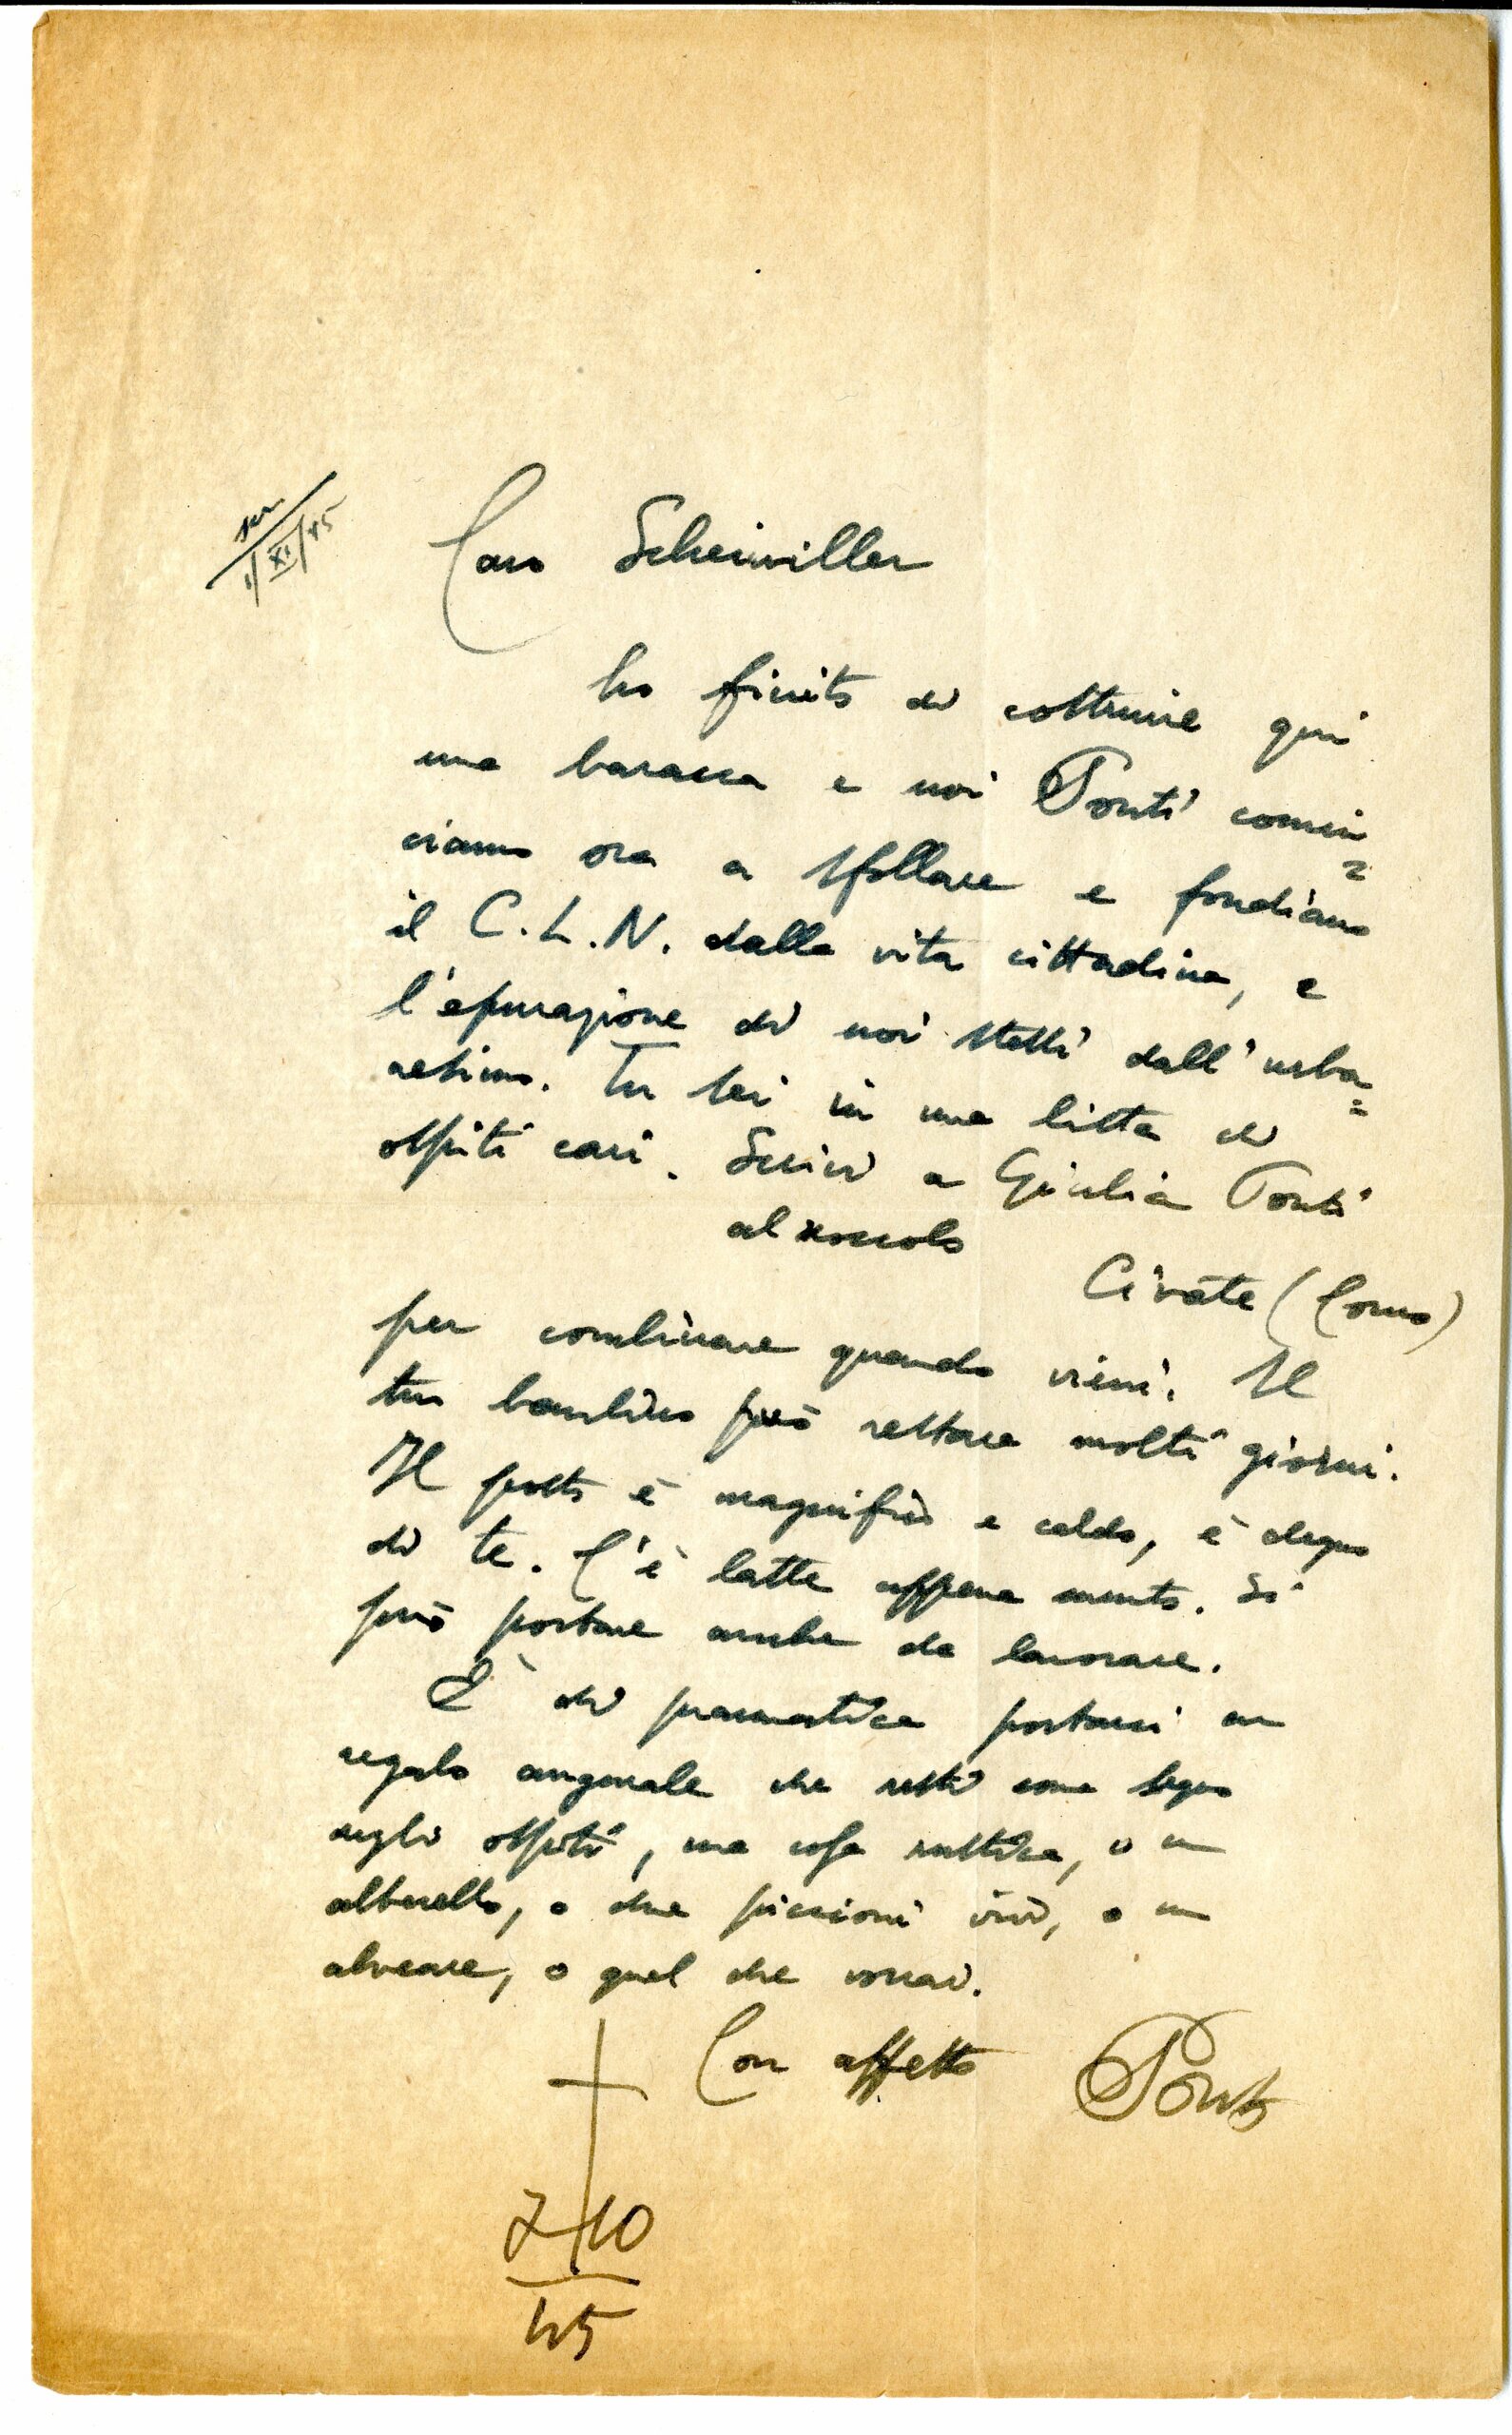 1/XI/45
Caro Scheiwiller
ho finito di costruire qui
una baracca e noi Ponti comin=
ciamo ora a sfollare e fondiamo
il C.L.N. dalla vita cittadina, e
l'epurazione di noi stessi dall'urba=
nesimo. Tu sei in una lista di
ospiti cari. Scrivi a Giulia Ponti
al roccolo
Civate (Como)
per combinare quando vieni. Il
tuo bambino può restare molti giorni.
Il posto è magnifico e caldo, è degno
di te. C'è latte appena munto. Si
può portare anche da lavorare.
È di prammatica portarci un
regalo augurale che resti come segno
degli ospiti, una cosa rustica, o un
alberello, o due piccioni vivi, o un
alveare, o quel che vorrai.
Con affetto Ponti
7 10
45